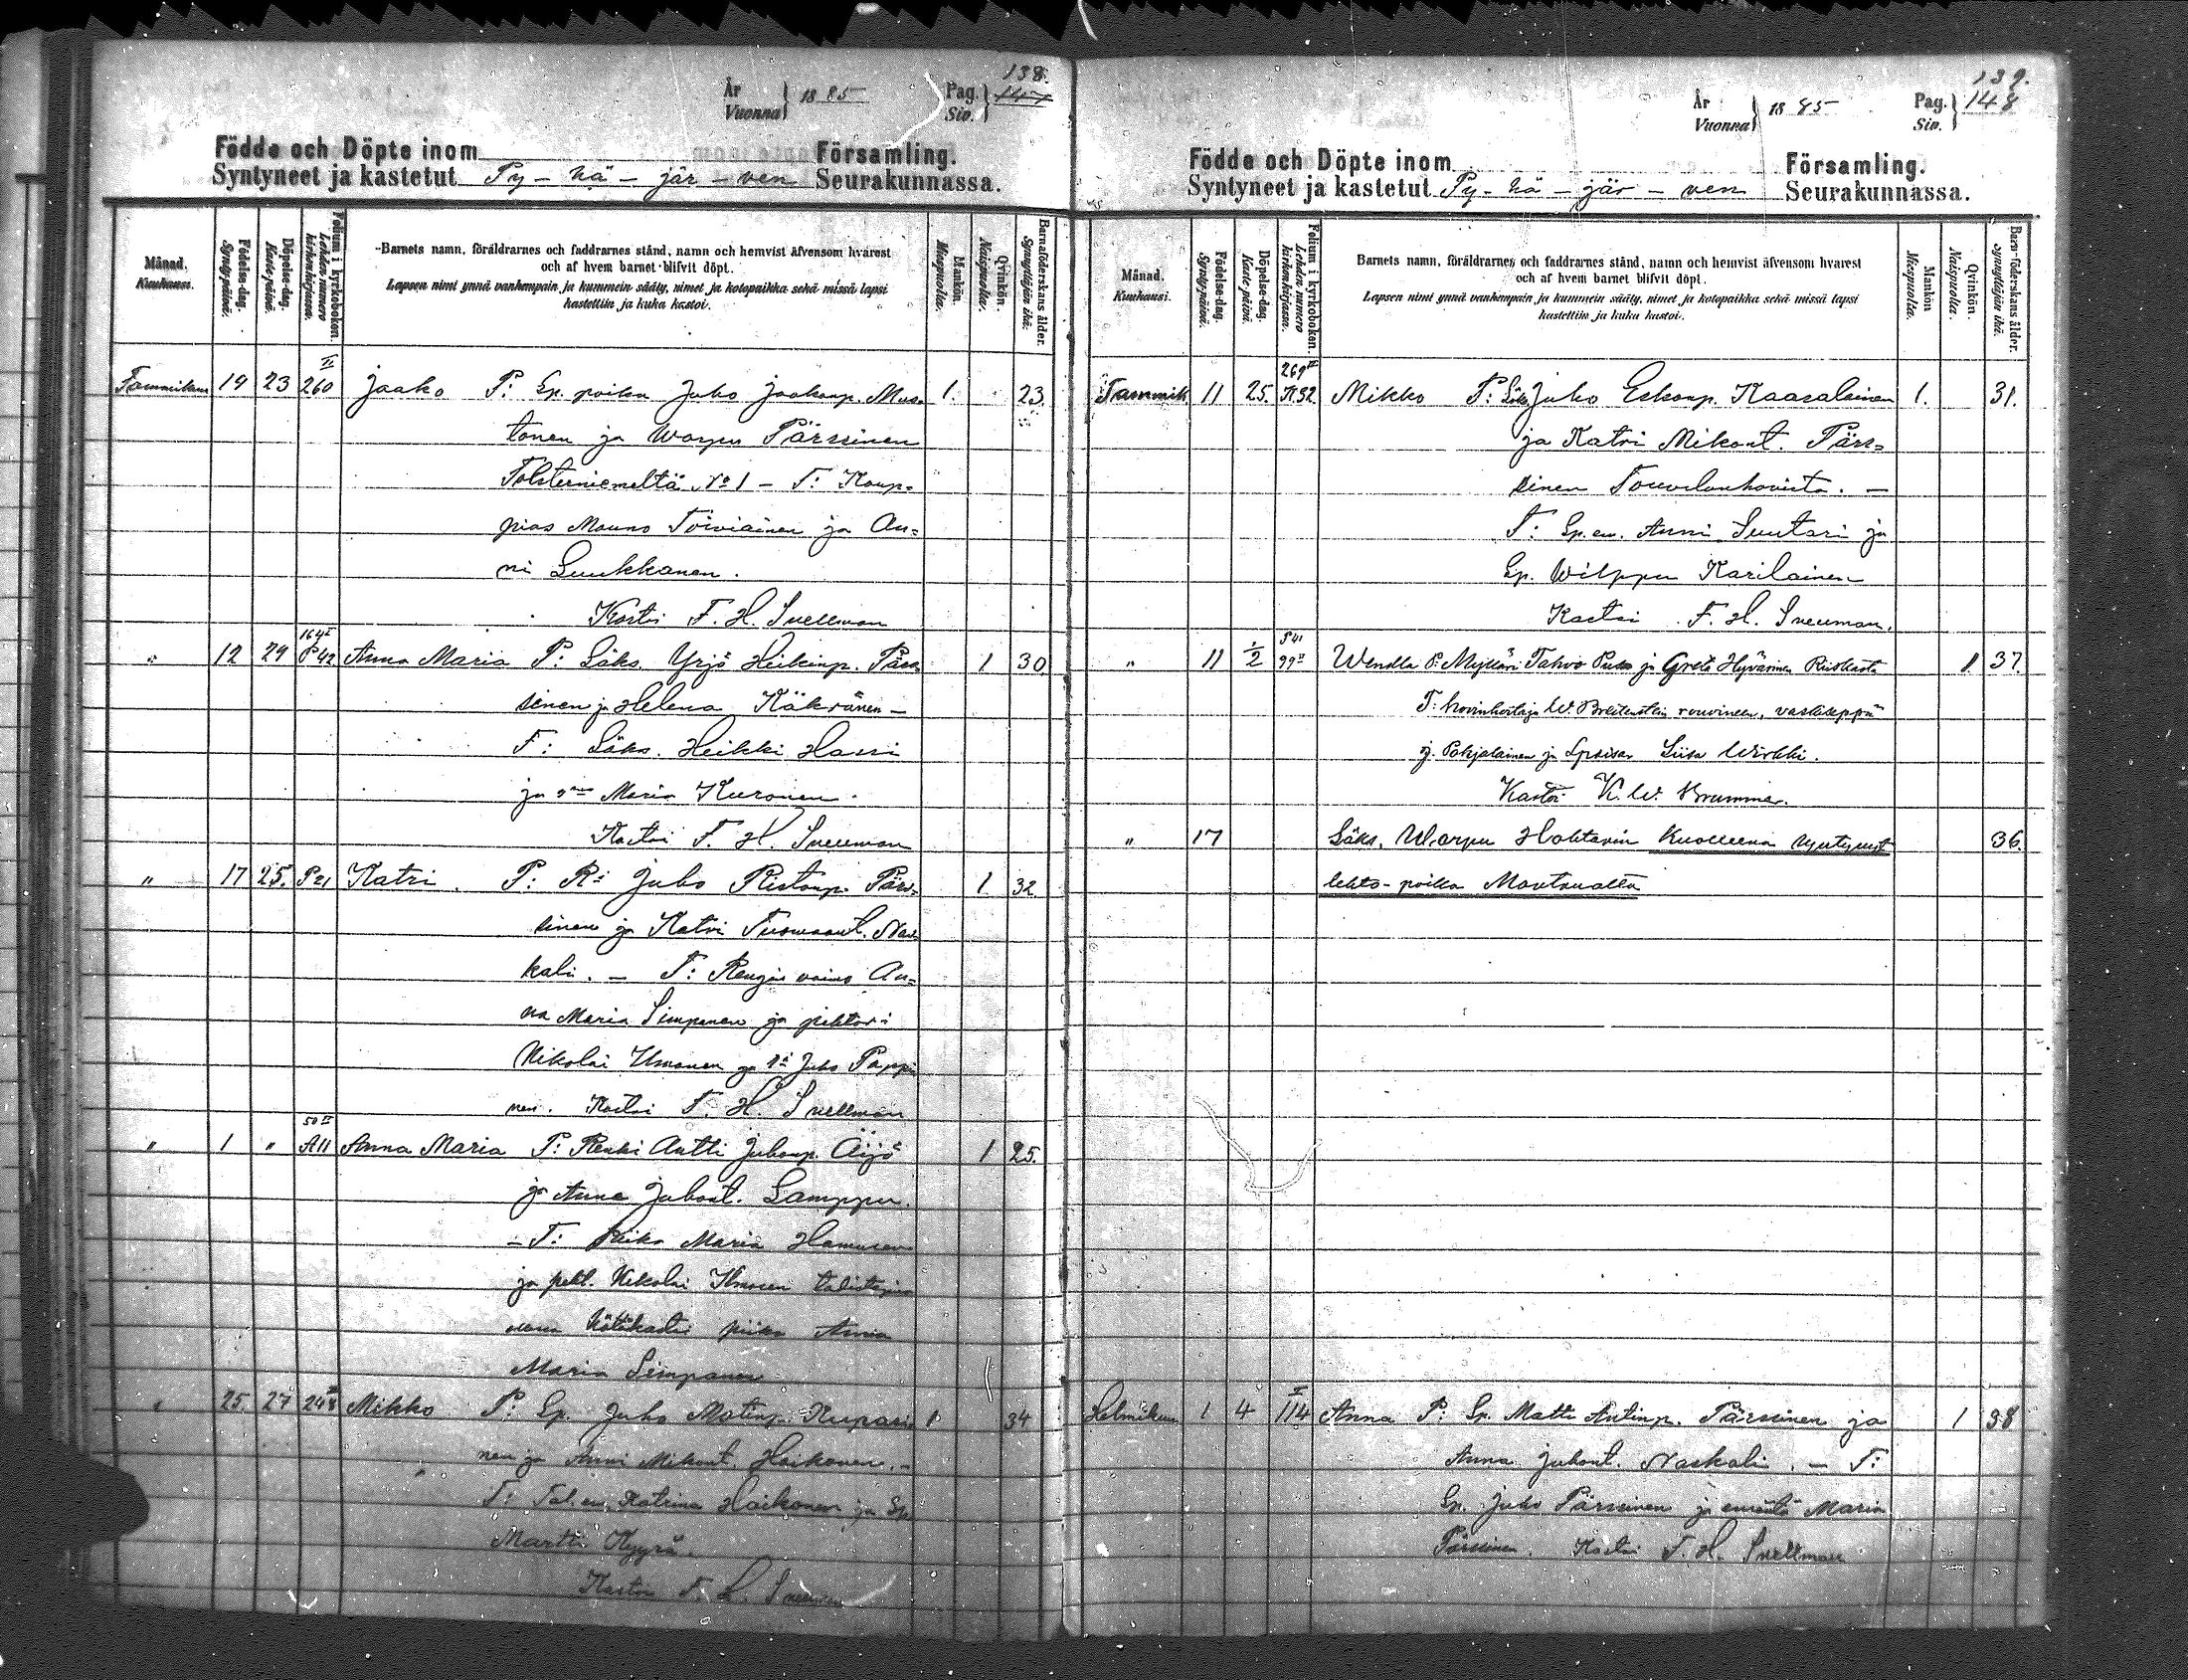 138.
År
Vuonna } 1885 Pag. Siv. } 147
Födde och Döpte inom Församling.
Syntyneet ja kastetut Py-hä-jär-ven Seurakunnassa.
Månad. Kuukausi.
Födelse-dag. Syntypäivä.
Döpelse-dag. Kaste-päivä.
Folium i kyrkoboken. Lehden numero kirkonkirjassa.
Barnets namn, föräldrarnes och faddrarnes stånd, namn och hemvist äfvensom hvarest
och af hvem barnet blifvit döpt.
Lapsen nimi ynnä vanhempain ja kummein sääty, nimet ja kotopaikka sekä missä lapsi
kastettiin ja kuka kastoi.
Mankön. Miespuolta.
Qvinkön. Naispuolta.
Barnaföderskans ålder. Synnyttäjän ikä.
Tammikuu 19 23 II 260 Jaako P: Lp. poika Juho Jaakonp. Mus- 1. 23.
tonen ja Warpu Pärssinen
No 1 - T: Kaup-
pias Mauno Toiviainen ja An-
ni Luukkanen.
Kastoi F. H. Snellman
" 12 29 164 I P42 Anna Maria P: Läks. Yrjö Heikinp. Pärs- 1 30.
sinen ja Helena Käkränen -
T: Läks. Heikki Hassi
ja Maria Kuronen.
Kastoi F. H. Snellman
" 17 25. P21 Katri. P: Juho Ristonp. Pärs- 1 32
sinen ja Katri Tuomaant. Nas-
kali. - T: Rengin vaimo An-
na Maria Simpanen ja pehtori
Nikolai Ilmonen ja Juho Pappi-
nen. Kastoi F. H. Snellman
" 1 " 50 II A11 Anna Maria P: Renki Antti Juhonp. Äijö 1 25.
ja Anna Juhont. Lamppu.
- T: Piika Maria Hamunen
ja peht. Nikolai Ilmonen
Hätäkastoi piika Anna
Maria Simpanen
" 25. 27 248 Mikko P: Lp. Juho Matinp. Kupari- 1 34
nen ja Anni Mikont. Haikonen. -
T: Tal. em. Katrina Haikonen ja Lp.
Martti Kyyrä.
Kastoi F. H. Snellman
139.
År
Vuonna } 1885 Pag. Siv. } 148
Födde och Döpte inom Församling.
Syntyneet ja kastetut Py-hä-jär-ven Seurakunnassa.
Månad. Kuukausi.
Födelse-dag. Syntypäivä.
Döpelse-dag. Kaste-päivä.
Folium i kyrkoboken. Lehden numero kirkonkirjassa.
Barnets namn, föräldrarnes och faddrarnes stånd, namn och hemvist äfvensom hvarest
och af hvem barnet blifvit döpt.
Lapsen nimi ynnä vanhempain ja kummein sääty, nimet ja kotopaikka sekä missä lapsi
kastettiin ja kuka kastoi.
Mankön Miespuolta.
Qvinkön. Naispuolta.
Barnaföderskans ålder. Synnyttäjän ikä.
Tammik. 11 25. 269 II K52. Mikko P: Läks. Juho Eskonp. Kaasalainen 1. 31.
ja Katri Mikont. Pärs-
sinen. -
T: Lp. em. Anni Suutari ja
Lp. Wilppu Karilainen
Kastoi F. H. Snellman.
" 11 1/2 P41 99 II Wendla P: Mylläri Tahvo Puso ja Greta Hyvärinen Riiskasta 1 37.
T: hovinhoitaja W. Breitenstein rouvineen, vaskiseppä
J. Pohjalainen ja Liisa Wirkki.
Kastoi K. W. Brummer.
" 17 Läks. Warpu Hohtarin kuolleena syntynyt 36.
lehto-poika Montrualta
Helmikuu 1 4 I 114 Anna P: Lp. Matti Antinp. Pärssinen ja 1 38
Anna Juhont. Naskali. - T:
Lp. Juho Pärssinen ja emäntä Maria
Pärssinen. Kastoi F. H. Snellman